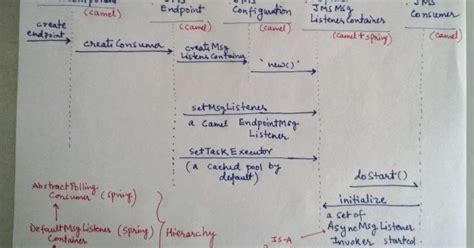 JMS
Endpoint
Configuration
JMS Msg
Listener Container
Consumer
(camel)
(camel)
(camel)
(camel)
(camel+spring)
(camel)
create
endpoint
createConsumer
createMsg
Listener Container
'new()'
setMsgListener
a Camel EndpointMsg
Listener
setTaskExecutor
(a cached pool by
default)
doStart()
initialize
a set of
AsyncMsgListener
Invoker started
AbstractPolling
Consumer (Spring)
DefaultMsgListener (Spring)
Container
Hierarchy
IS-A